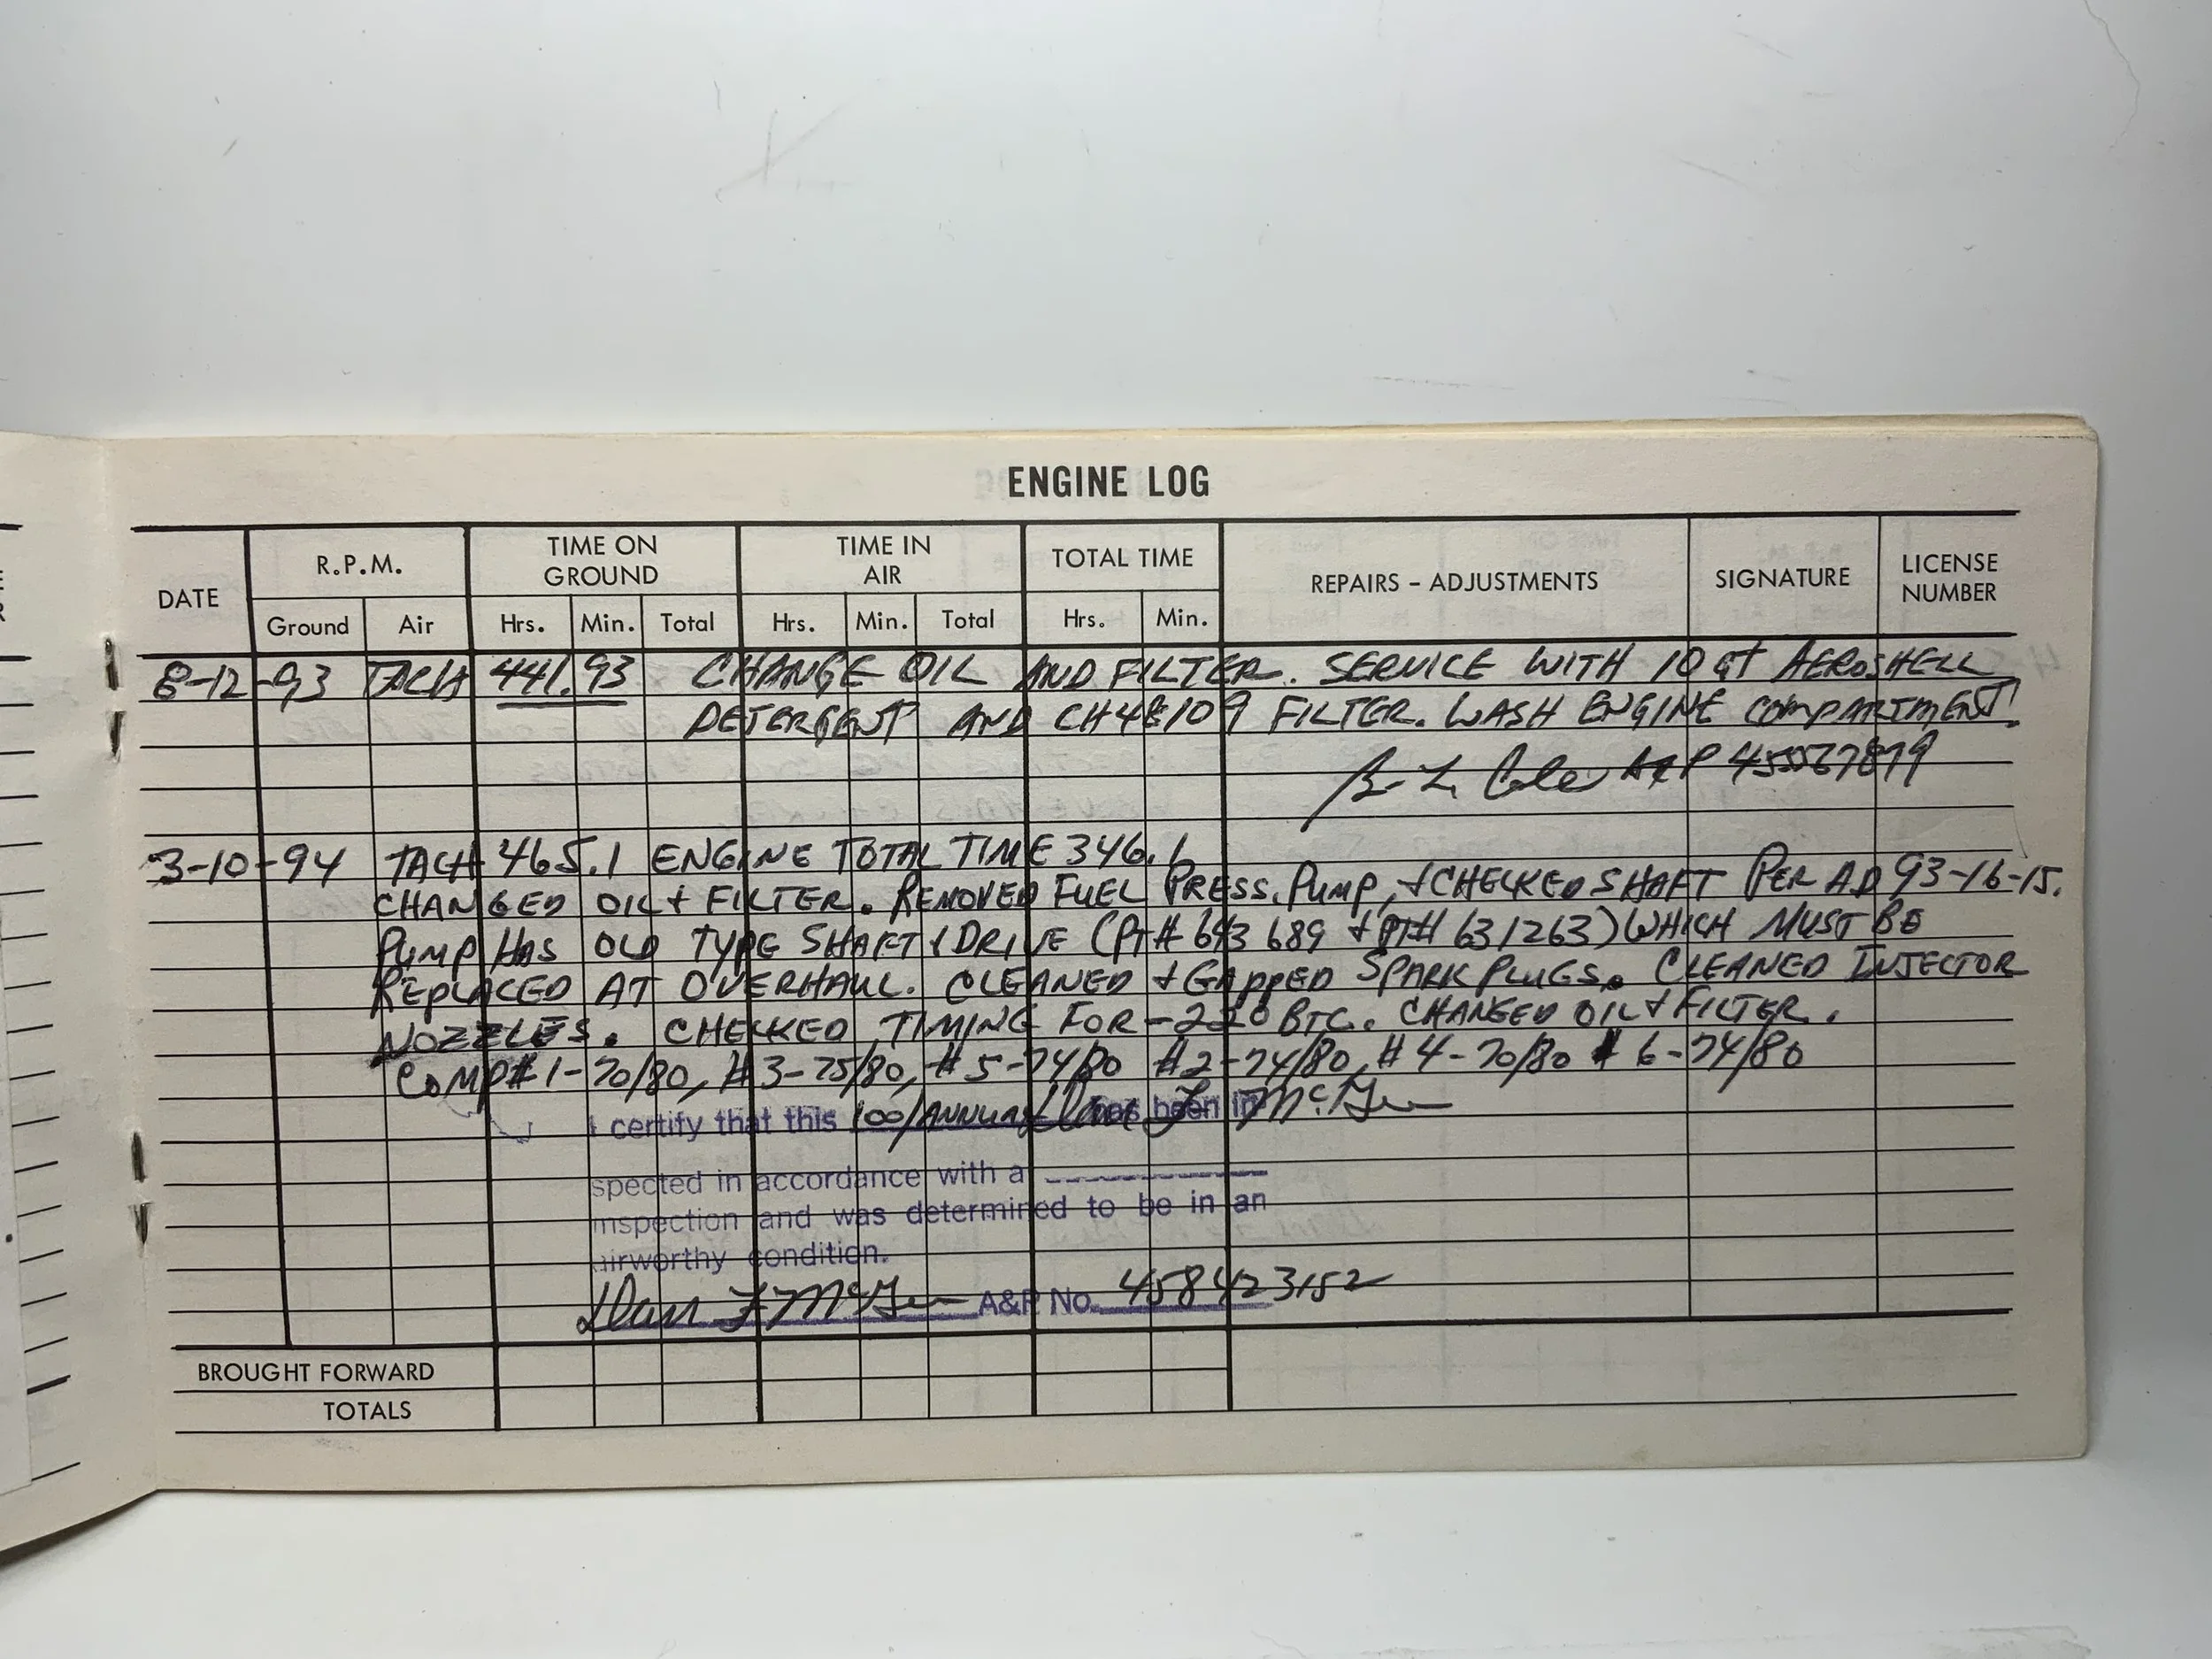 ENGINE LOG
DATE R.P.M. TIME ON GROUND TIME IN AIR TOTAL TIME REPAIRS - ADJUSTMENTS SIGNATURE LICENSE NUMBER
Ground Air Hrs. Min. Total Hrs. Min. Total Hrs. Min.
8-12-93 TACH 441.93 CHANGE OIL AND FILTER. SERVICE WITH 10 qt AEROSHELL
DETERGENT AND CH48109 FILTER. WASH ENGINE COMPARTMENT.
A&P
3-10-94 TACH 465.1 ENGINE TOTAL TIME 346.1
CHANGED OIL + FILTER. REMOVED FUEL PRESS. PUMP, + CHECKED SHAFT PER AD 93-16-15.
PUMP HAS OLD TYPE SHAFT & DRIVE (PT# 643689 + PT# 631263) WHICH MUST BE
REPLACED AT OVERHAUL. CLEANED + GAPPED SPARK PLUGS. CLEANED INJECTOR
NOZZLES. CHECKED TIMING FOR - 22° BTC. CHANGED OIL + FILTER.
COMP #1-70/80, #3-75/80, #5-74/80 #2-74/80, #4-70/80 # 6-74/80
I certify that this 100/ANNUAL has been in
spected in accordance with a
inspection and was determined to be in an
airworthy condition.
A&P No. 458423152
BROUGHT FORWARD
TOTALS